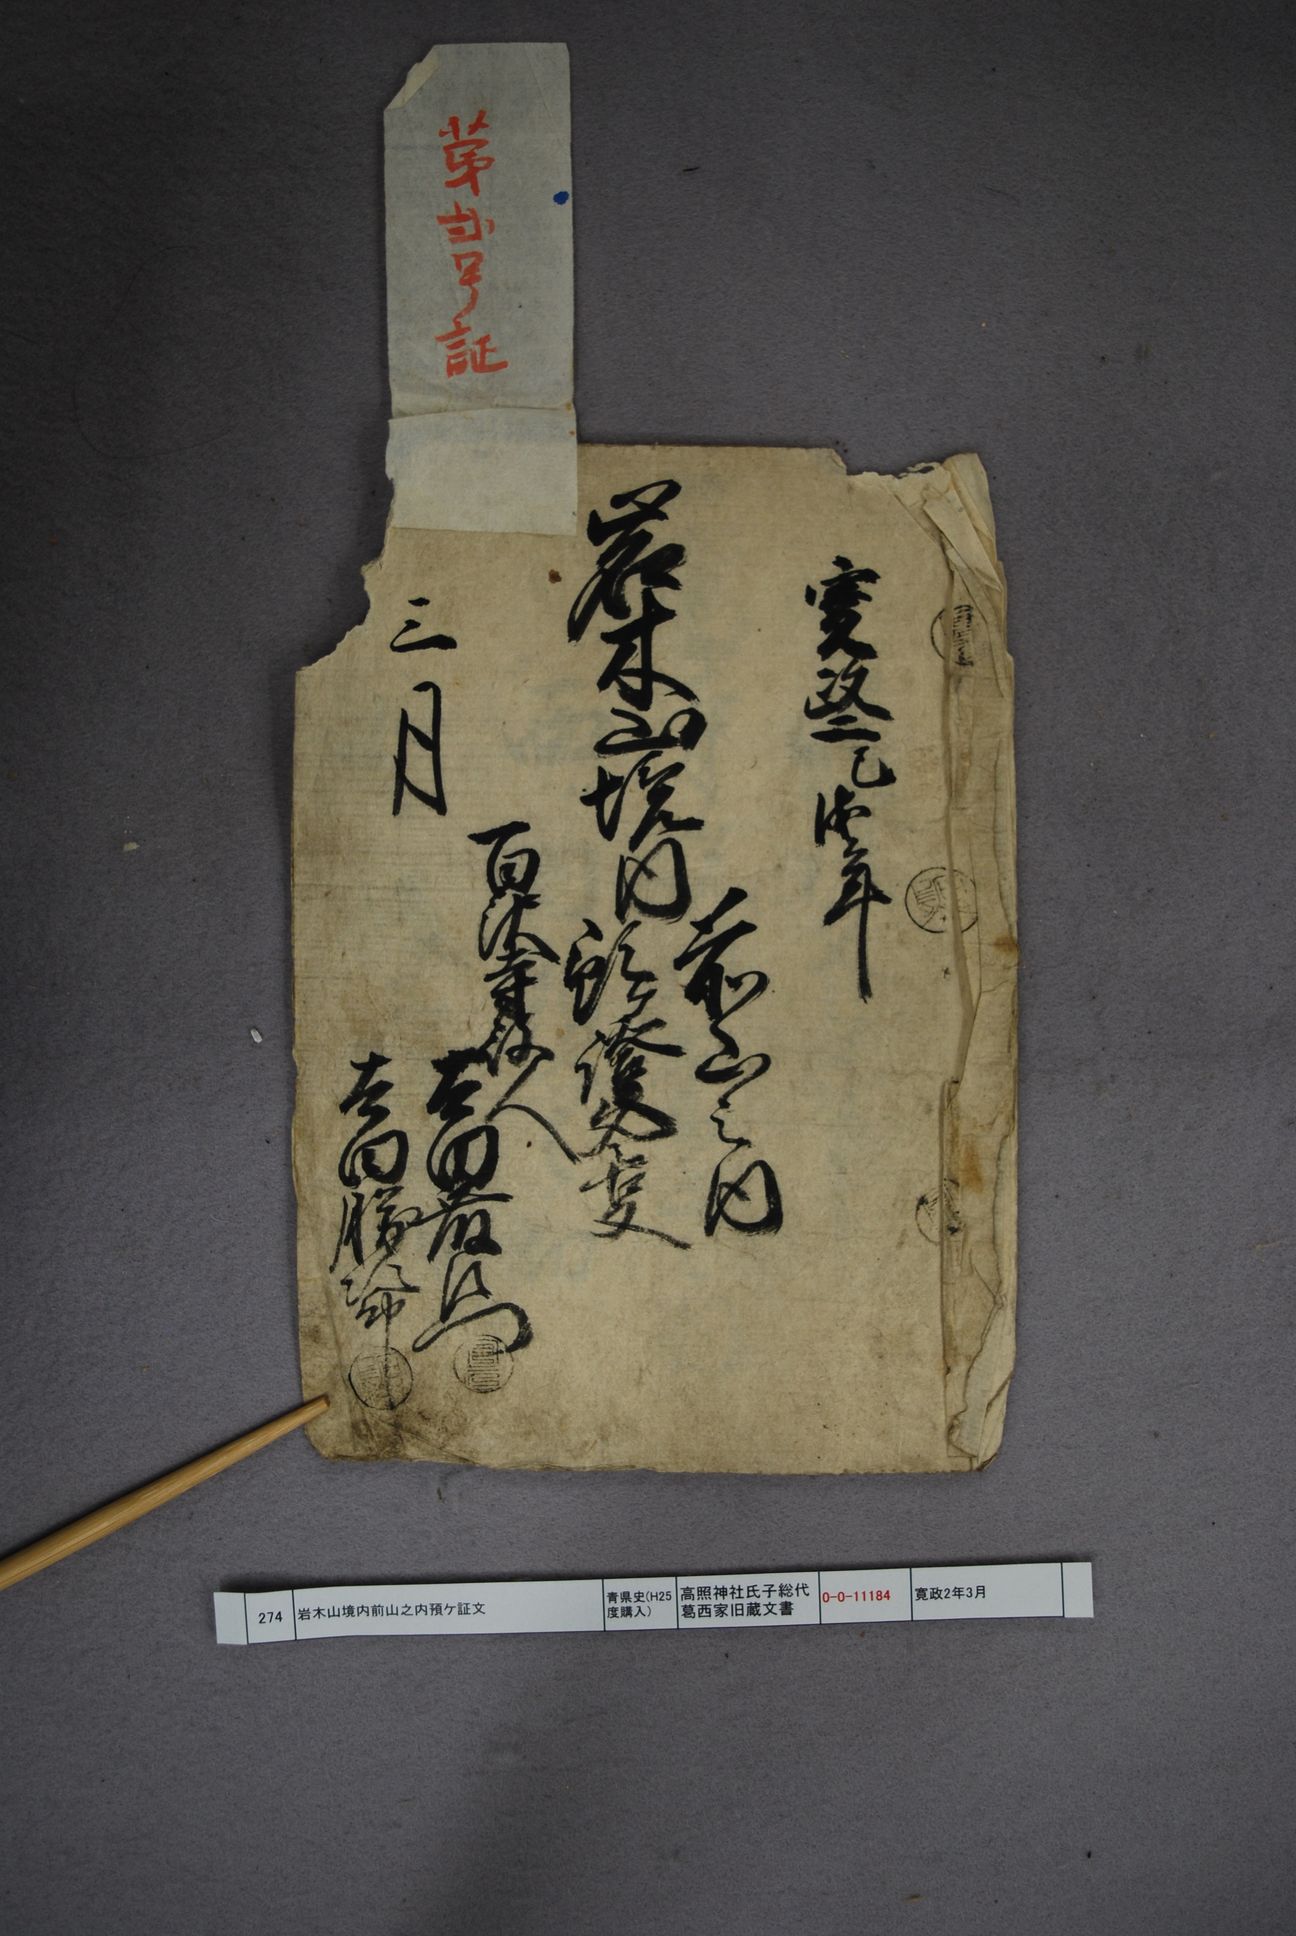 第弐号証
寛政二己酉年
前山之内
岩木山境内
預証文
三月
百沢寺役人
太田
太田勝
274
岩木山境内前山之内預ケ証文
青県史(H25
度購入)
高照神社氏子総代
葛西家旧蔵文書
0-0-11184
寛政2年3月